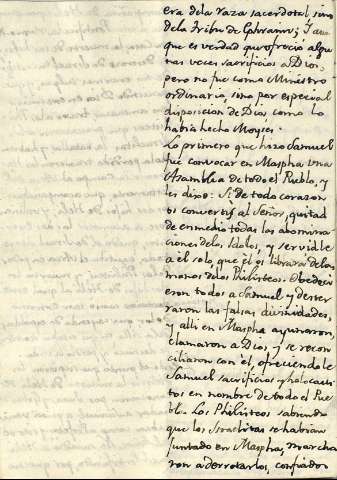 era de la raza sacerdotal, sino
de la Tribu de Ephraim; Y aun
que es verdad que ofreció algu
nas veces sacrificios a Dios,
pero no fue como Ministro
ordinario, sino por especial
disposicion de Dios como lo
habia hecho Moyses.
Lo primero que hizo Samuel
fue convocar en Maspha una
Asamblea de todo el Pueblo, y
les dixo: Si de todo corazon
os convertis al Señor, quitad
de enmedio todas las abomina
ciones de los Idolos, y servidle
a el solo que él os librará de las
manos de los Philisteos. Obedeci
eron todos a Samuel y dester
raron las falsas divinidades,
y alli en Maspha ayunaron,
clamaron a Dios y se recon
ciliaron con él, ofreciendole
Samuel sacrificios y holocaus
tos en nombre de todo el Pue
blo. Los Philisteos sabiendo
que los Israelitas se habian
juntado en Maspha, marcha
ron a derrotarlos, confiados